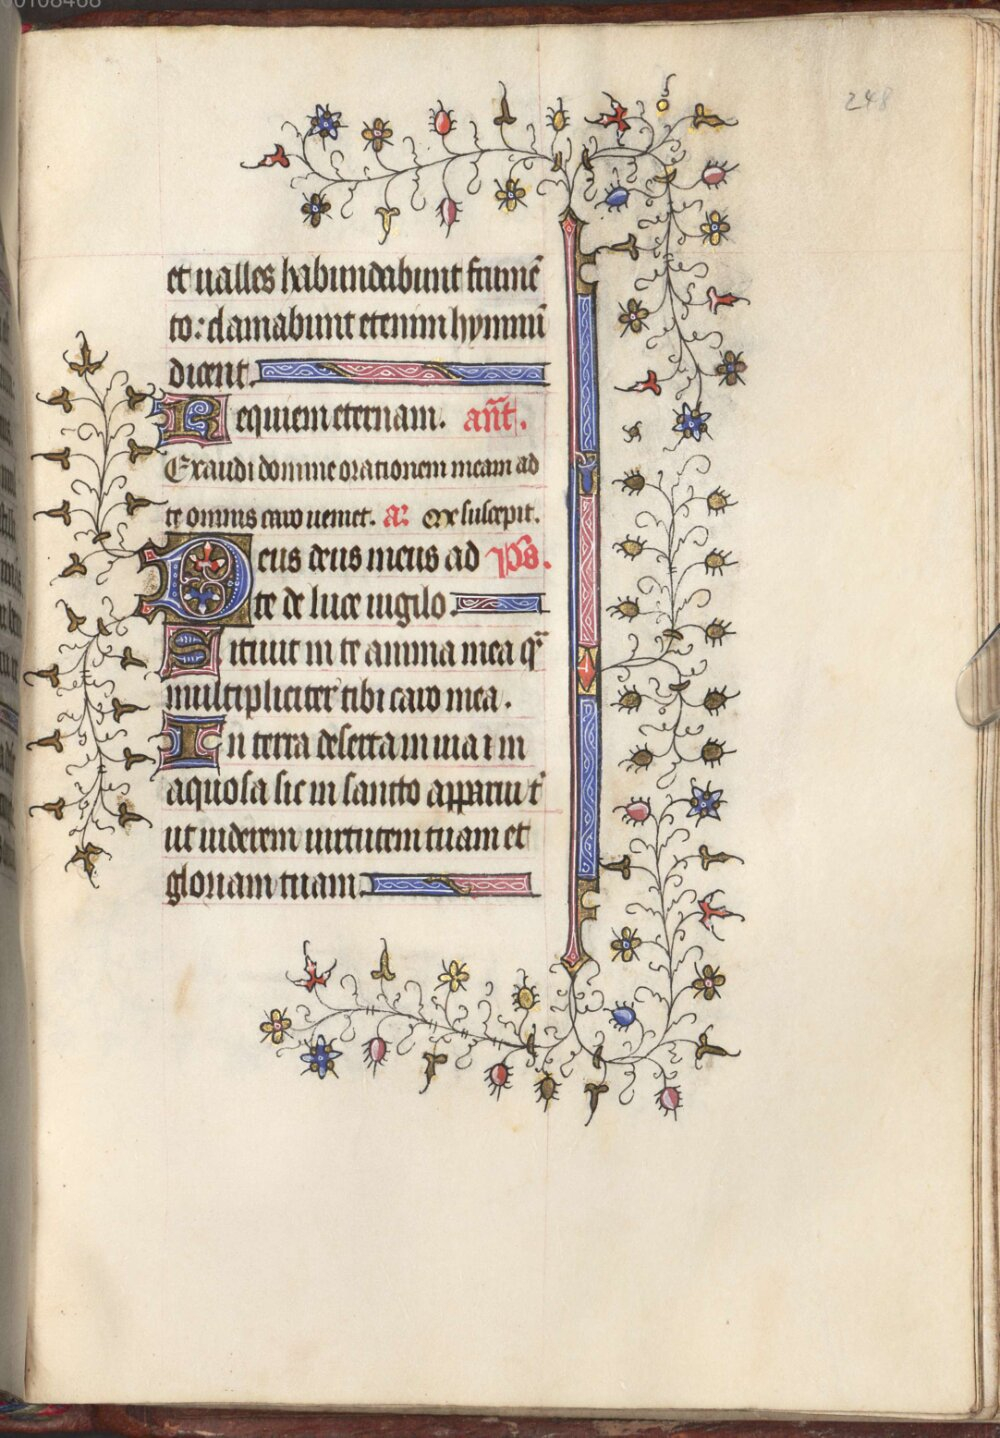 00108468
248
et ualles habundabunt frumē
to: clamabunt etenim hymnū
dicent.
Requiem eternam. ant̄.
Exaudi domine orationem meam ad
te omnis caro ueniet. a: Me suscepit.
Deus deus meus ad p̄s.
te de luce uigilo
Sitiuit in te anima mea qᷓ
multipliciter tibi caro mea.
In terra deserta inuia ⁊ in
aquosa sic in sancto apparui t̾
ut uiderem uirtutem tuam et
gloriam tuam.